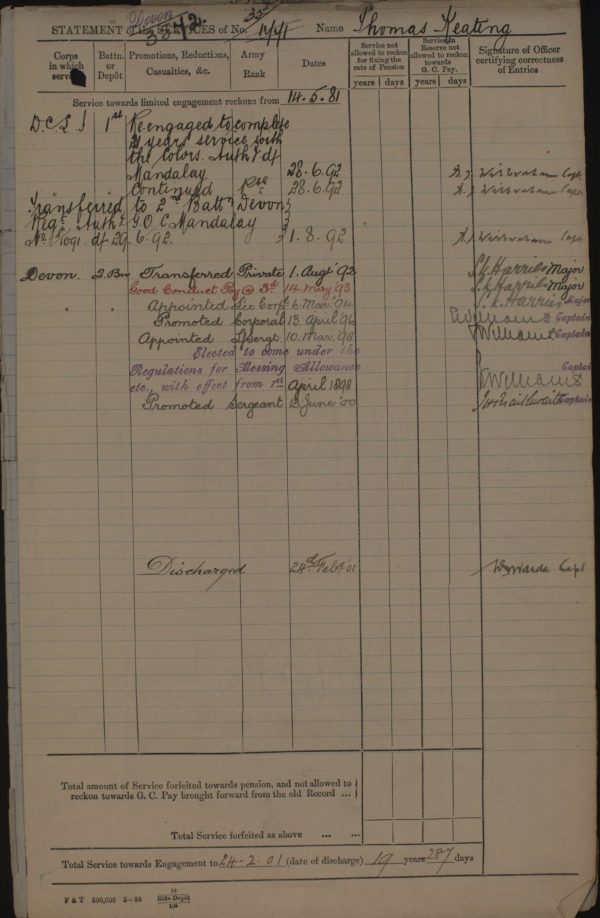 Devon
3372.
STATEMENT of the SERVICES of No. Name Thomas Keating
Corps in which served
Battn. or Depôt
Promotions, Reductions, Casualties, &c.
Army Rank
Dates
Service not allowed to reckon for fixing the rate of Pension
years days
Service in Reserve not allowed to reckon towards G. C. Pay.
years days
Signature of Officer certifying correctness of Entries
Service towards limited engagement reckons from 14.5.81
D.C.L.I 1st Re-engaged to complete
21 years service with
the Colors. Authy df
Mandalay 28.6.92
Continued Pte 28.6.92
Transferred to 2nd Battn Devon
Regt. Authy G.O.C. Mandalay
No. df 29.6.92. 1.8.92
Devon. 2.Bn Transferred Private 1. Augt '92 Harris Major
Good Conduct Pay @ 3d 14. may '93 Harris Major
" " Appointed Lce Corpl 6. Mar. '94 Harris Major
Promoted Corporal 13. April '96 Williams Captain
Appointed L/Sergt. 10. Mar. '98 Williams Captain
Elected to come under the
Regulations for Messing Allowance Captain
etc., with effect from 1st April 1898 Williams
Promoted Sergeant 13 June '00 Captain
Discharged 24th Feby '01 Capt
Total amount of Service forfeited towards pension, and not allowed to
reckon towards G. C. Pay brought forward from the old Record ...
Total Service forfeited as above ... ...
Total Service towards Engagement to 24-2-01 (date of discharge) 19 years 287 days
F & T 500,000
Rifle Depôt